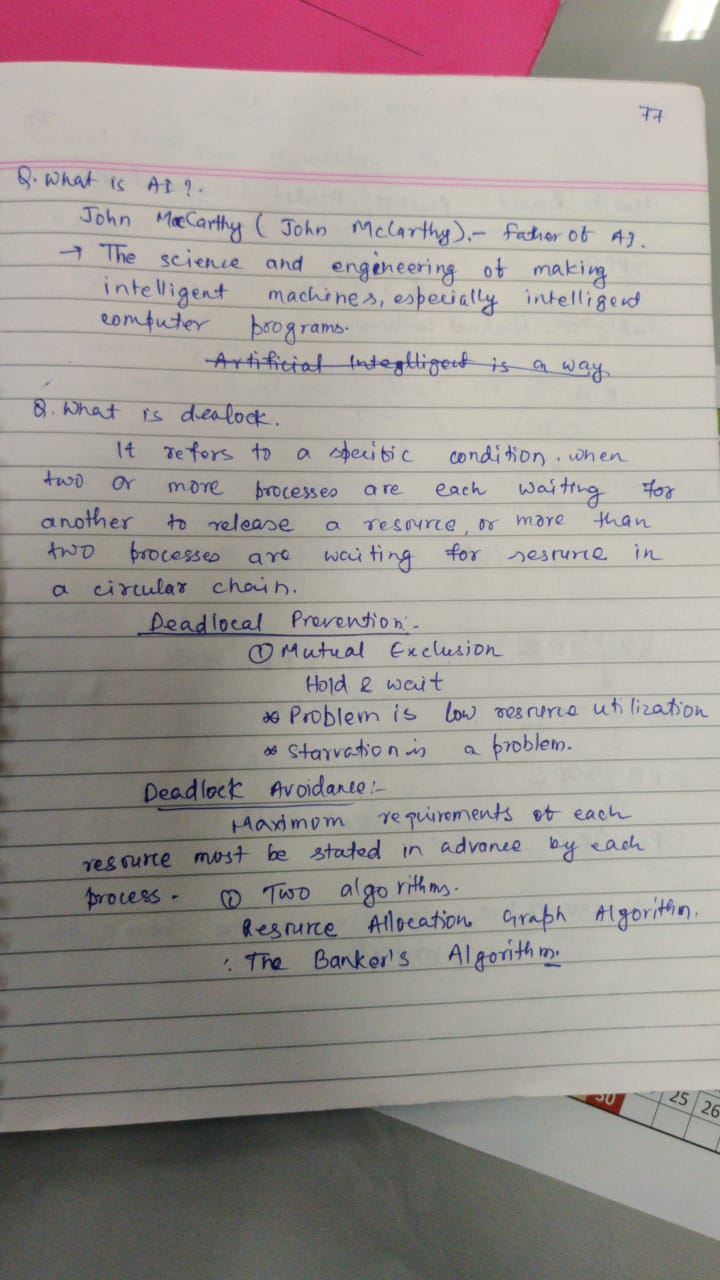 77
Q. What is AI ?.
John MacCarthy ( John McCarthy).- Father of AI.
→ The science and engineering of making
intelligent machines, especially intelligent
computer programs.
Artificial Integlligent is a way
Q. What is dealock.
It refers to a specific condition. when
two or more processes are each waiting for
another to release a resource, or more than
two processes are waiting for resource in
a circular chain.
Deadlocal Prevention:-
① Mutual Exclusion
Hold & wait
* Problem is low resource utilization
* Starvation is a problem.
Deadlock Avoidance:-
Maximum requirements of each
resource must be stated in advance by each
process. ① Two algorithms.
Resource Allocation Graph Algorithm.
: The Banker's Algorithm.
30 25 26